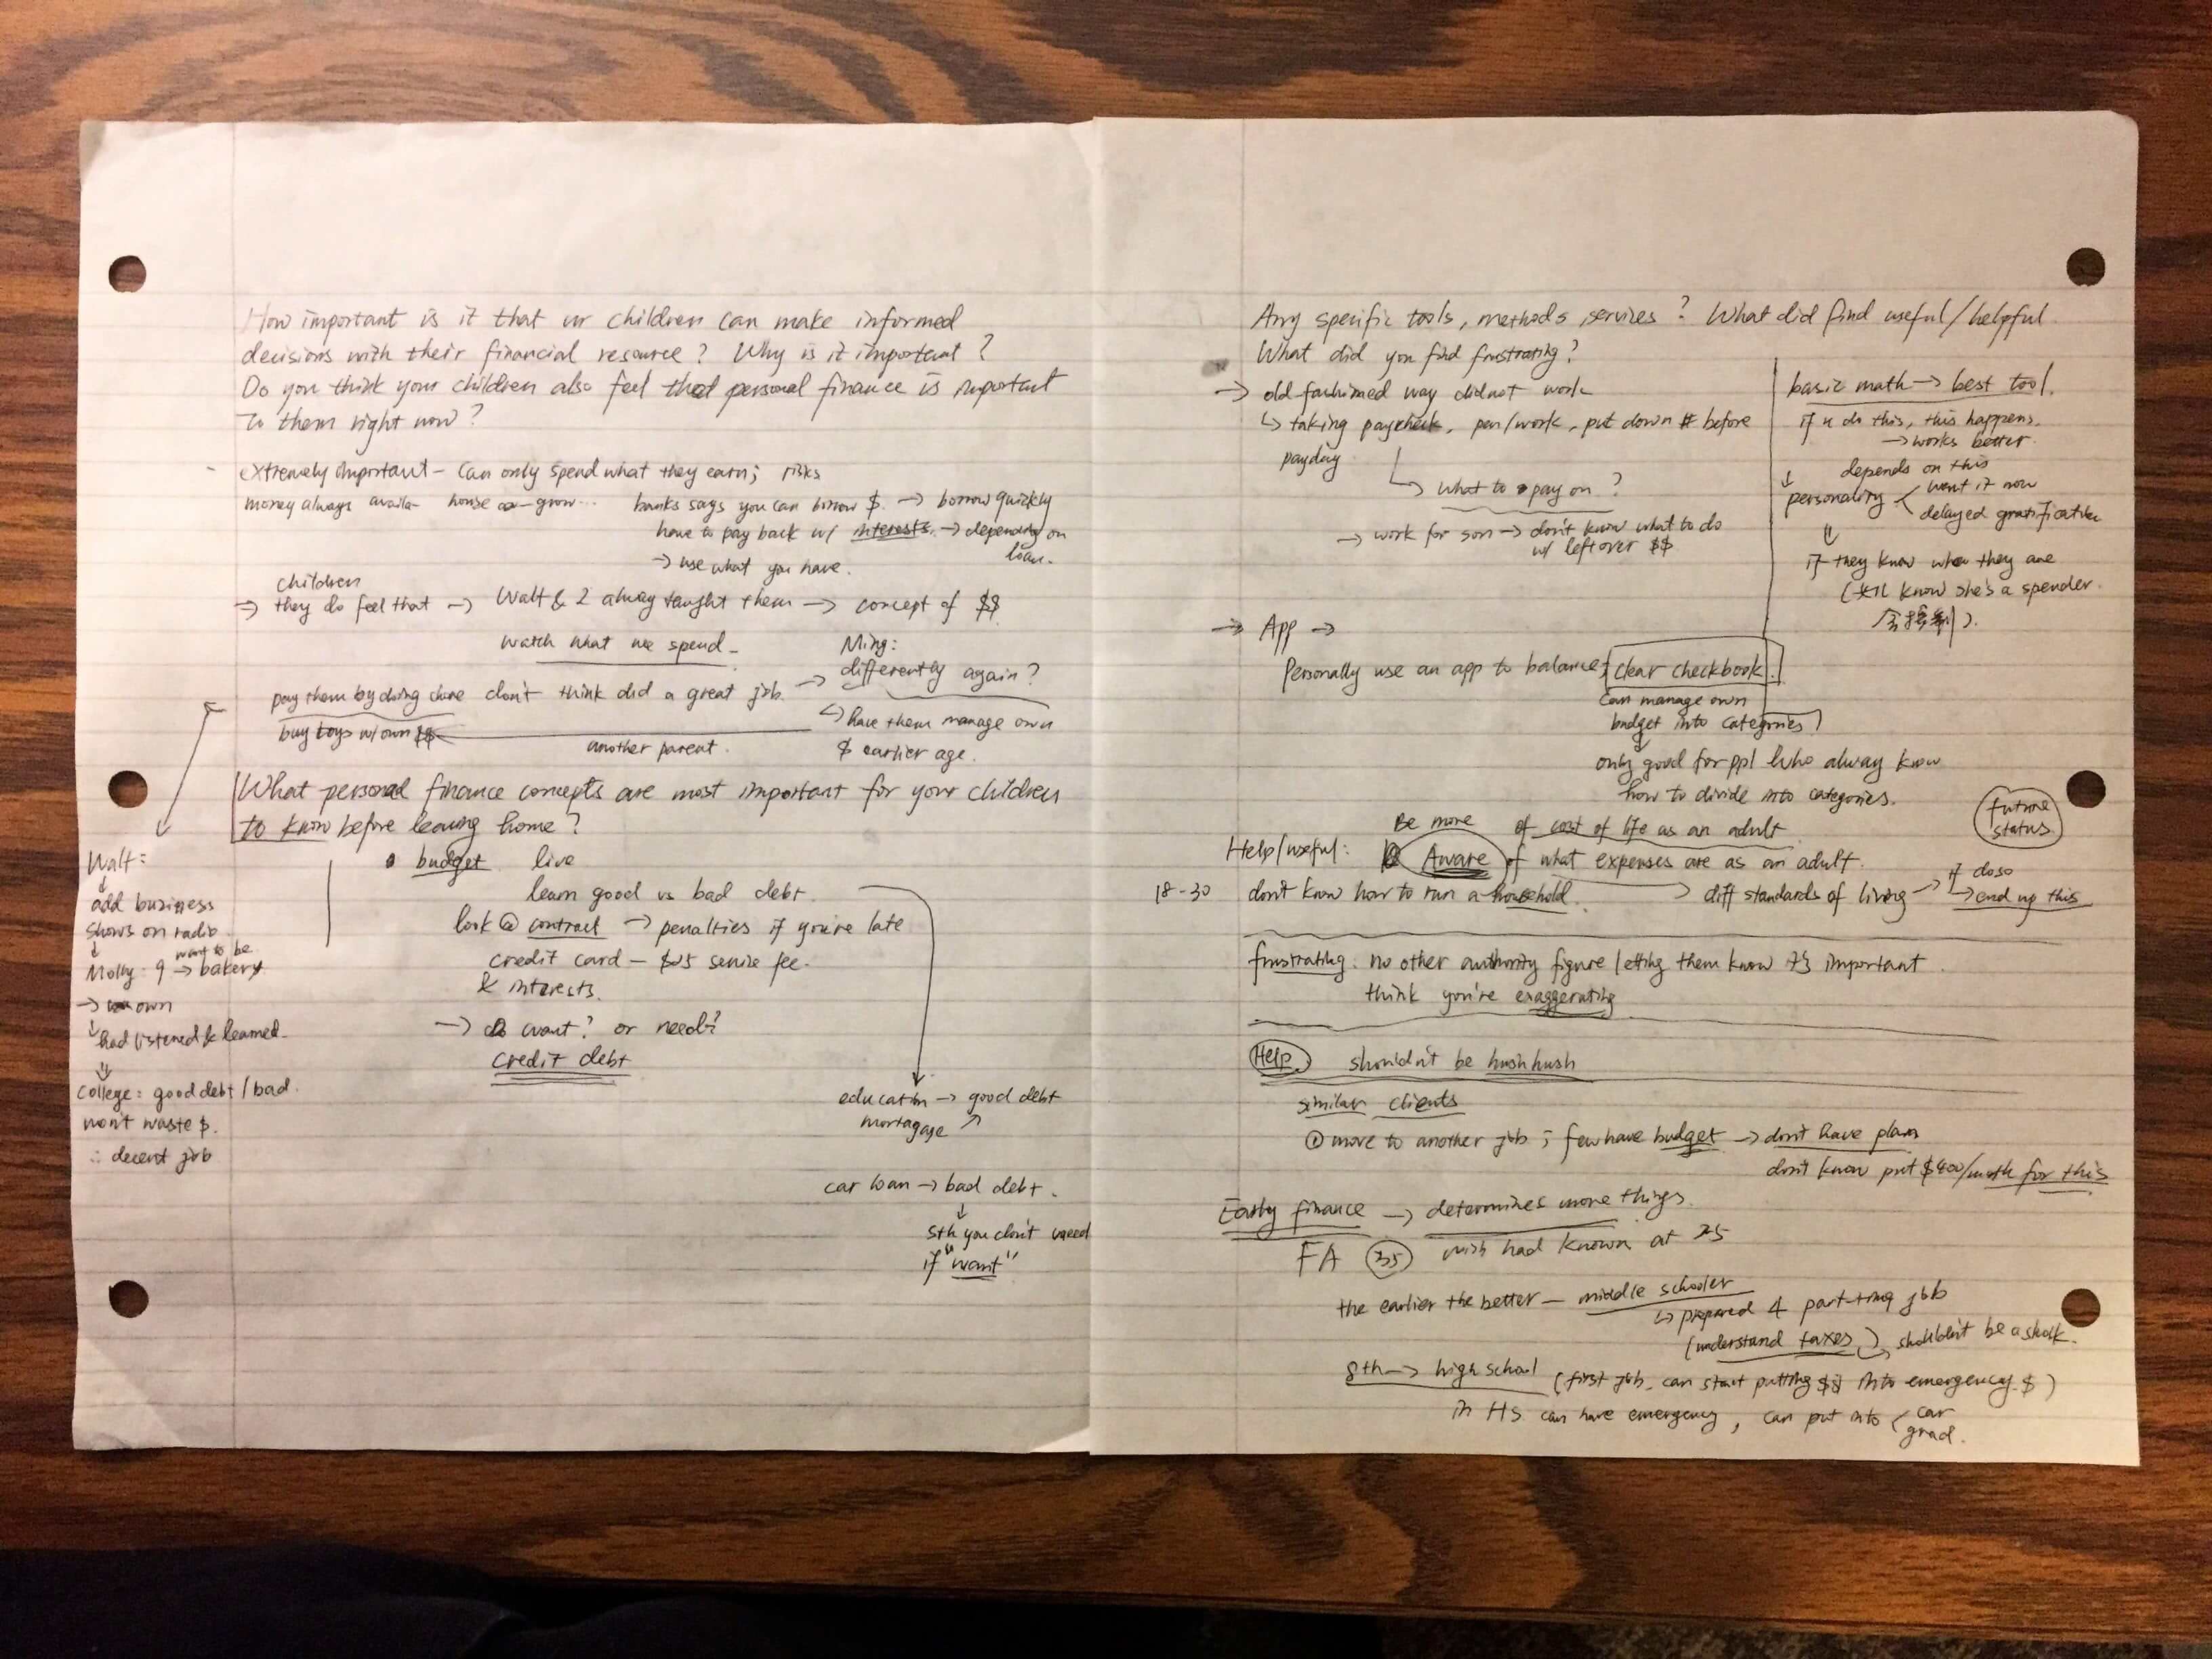 How important is it that ur children can make informed
decisions with their financial resource? Why is it important?
Do you think your children also feel that personal finance is important
to them right now?
- extremely important - can only spend what they earn; risks
money always availa- house grow... banks says you can borrow $. → borrow quickly
have to pay back w/ interests. → depending on
loan.
→ use what you have.
children
→ they do feel that → Walt & I alway taught them → concept of $$
watch what we spend -
Ming:
pay them by doing chore don't think did a great job. → differently again?
buy toys w/ own $$ ↳ have them manage own
another parent. $ earlier age.
What personal finance concepts are most important for your children
to know before leaving home?
Walt:
↓
add business
shows on radio
↓
want to be
Molly: 9 → bakery
→ own
↓
had listened & learned.
⇓
College: good debt / bad
won't waste $.
∴ decent job
• budget live
learn good vs bad debt.
look @ contract → penalties if you're late
credit card - $25 servise fee.
& interests.
→ want? or need?
credit debt
education → good debt
mortagage ↗
car loan → bad debt.
↓
sth you don't need
if "want"
Any specific tools, methods, servises? What did find useful/helpful
What did you find frustrating?
→ old fashioned way did not work
↳ taking paycheck, pen/work, put down # before
payday
↳ what to pay on?
→ work for son → don't know what to do
w/ leftover $$
basic math → best tool.
if u do this, this happens.
→ works better.
depends on this
↓
personality < want it now
delayed gratification
⇓
if they know who they are
(know she's a spender.
会控制).
→ App →
Personally use an app to balance; clear checkbook!
can manage own
budget into categories
only good for ppl who alway know
how to divide into categories.
future
status
Be more of cost of life as an adult
Help/useful: Aware of what expenses are as an adult.
18-30 don't know how to run a household. → diff standards of living → if do so
→ end up this
frustrating: no other authority figure letting them know it's important.
think you're exaggerating
Help shouldn't be hush hush
similar clients
① move to another job; few have budget → don't have plan
don't know put $400/month for this
Early finance → determines more things.
FA 35 wish had known at 25
the earlier the better - middle schooler
↳ prepared 4 part-time job
(understand taxes) shouldn't be a shock.
8th → high school (first job, can start putting $$ into emergency $)
in HS can have emergency, can put into < car
grad.